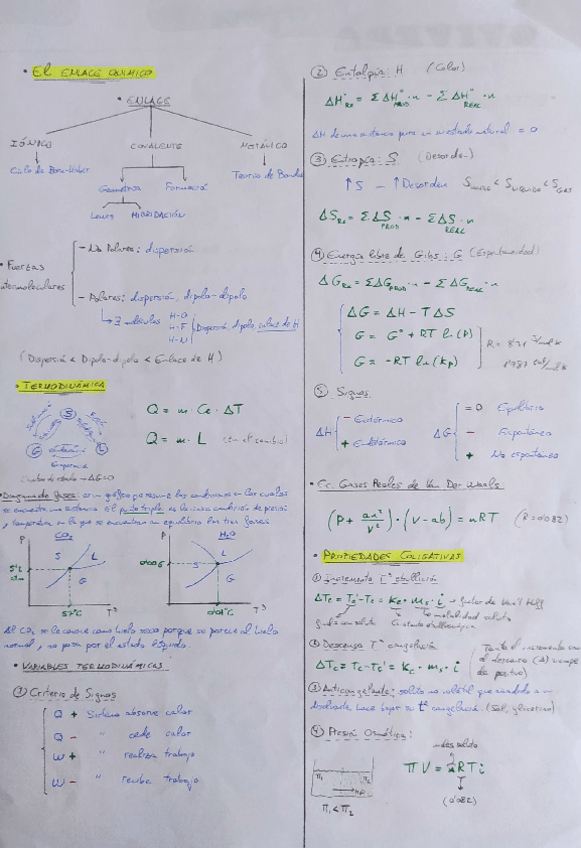 • EL ENLACE QUÍMICO
• ENLACE
IÓNICO COVALENTE METÁLICO
Ciclo de Born-Haber Teoría de Bandas
Geometría Formación
Lewis HIBRIDACIÓN
• Fuerzas intermoleculares
- No Polares: dispersión
- Polares: dispersión, dipolo-dipolo
→ ∃ moléculas H-O H-F H-N (Dispersión, dipolo, enlace de H)
(Dispersión < Dipolo-dipolo < Enlace de H)
• TERMODINÁMICA
S G L
Q = m · Ce · ΔT
Q = m · L (en el cambio)
Cambios de estado → ΔG=0
Diagrama de fases: es un gráfico que resume las condiciones en las cuales
se encuentra una sustancia. El punto triple es la única condición de presión
y temperatura en la que se encuentran en equilibrio las tres fases
P CO₂ S L G Tª
P H₂O S L G Tª
0'01ºC
Al CO₂ se le conoce como hielo seco porque no parece al hielo
normal, no pasa por el estado líquido.
• VARIABLES TERMODINÁMICAS
① Criterio de Signos
Q + Sistema absorve calor
Q - " cede calor
W + " realiza trabajo
W - " recibe trabajo
② Entalpía: H (Calor)
ΔHºRx = Σ ΔHº PROD · n - Σ ΔHº REAC · n
ΔH de una sustancia pura en su estado natural = 0
③ Entropía: S (Desorden)
↑S - ↑Desorden S SÓLIDO < S LÍQUIDO < S GAS
ΔS Rx = Σ ΔS PROD · n - Σ ΔS REAC · n
④ Energía libre de Gibs: G (Espontaneidad)
ΔG Rx = Σ ΔG PROD · n - Σ ΔG REAC · n
ΔG = ΔH - TΔS
G = Gº + RT ln(P)
G = -RT ln(Kp)
⑤ Signos:
ΔH - Exotérmico
+ Endotérmico
ΔG = 0 Equilibrio
- Espontáneo
+ No espontáneo
• Ec. Gases Reales de Van Der Waals
(P + an²/V²) · (V - nb) = nRT (R = 0'082)
• PROPIEDADES COLIGATIVAS
① Incremento Tª ebullición
ΔTe = Te' - Te = Ke · ms · i → factor de Van't Hoff
molalidad soluto
Cte ebulloscópica
② Descenso Tª congelación
ΔTc = Tc - Tc' = Kc · ms · i
(Tanto el incremento como el descenso (Δ) siempre da positivo)
③ Anticongelante: soluto no volátil que añadido a un
disolvente hace bajar su tª congelación. (Sal, glicerina)
④ Presión Osmótica:
π₁ π₂ H₂O
π₁ < π₂
moles soluto
π V = nRTi
(0'082)